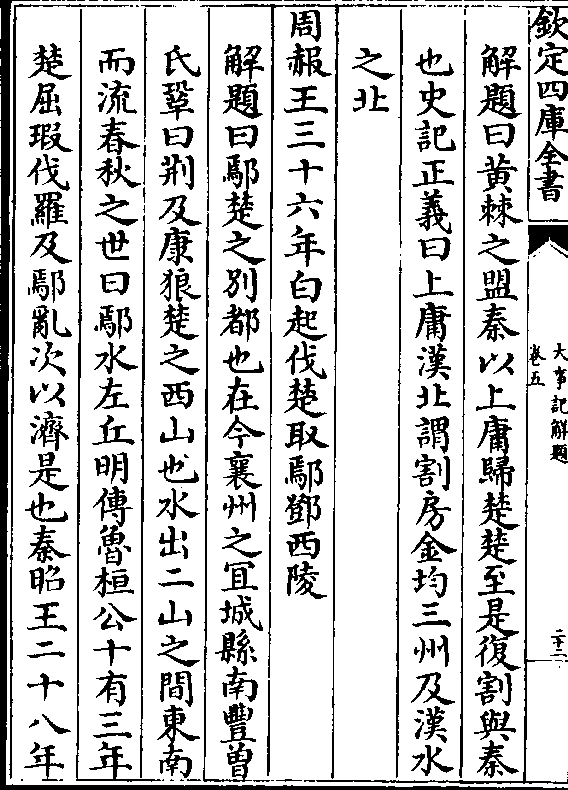 欽定四庫全書
大事記解題
卷五
二十二
解題曰黃棘之盟秦以上庸歸楚楚至是復割與秦
也史記正義曰上庸漢北謂割房金均三州及漢水
之北
周赧王三十六年白起伐楚取鄢鄧西陵
解題曰鄢楚之別都也在今襄州之冝城縣南豐曾
氏鞏曰荆及康狼楚之西山也水出二山之間東南
而流春秋之世曰鄢水左丘明傳魯桓公十有三年
楚屈瑕伐羅及鄢亂次以濟是也秦昭王二十八年